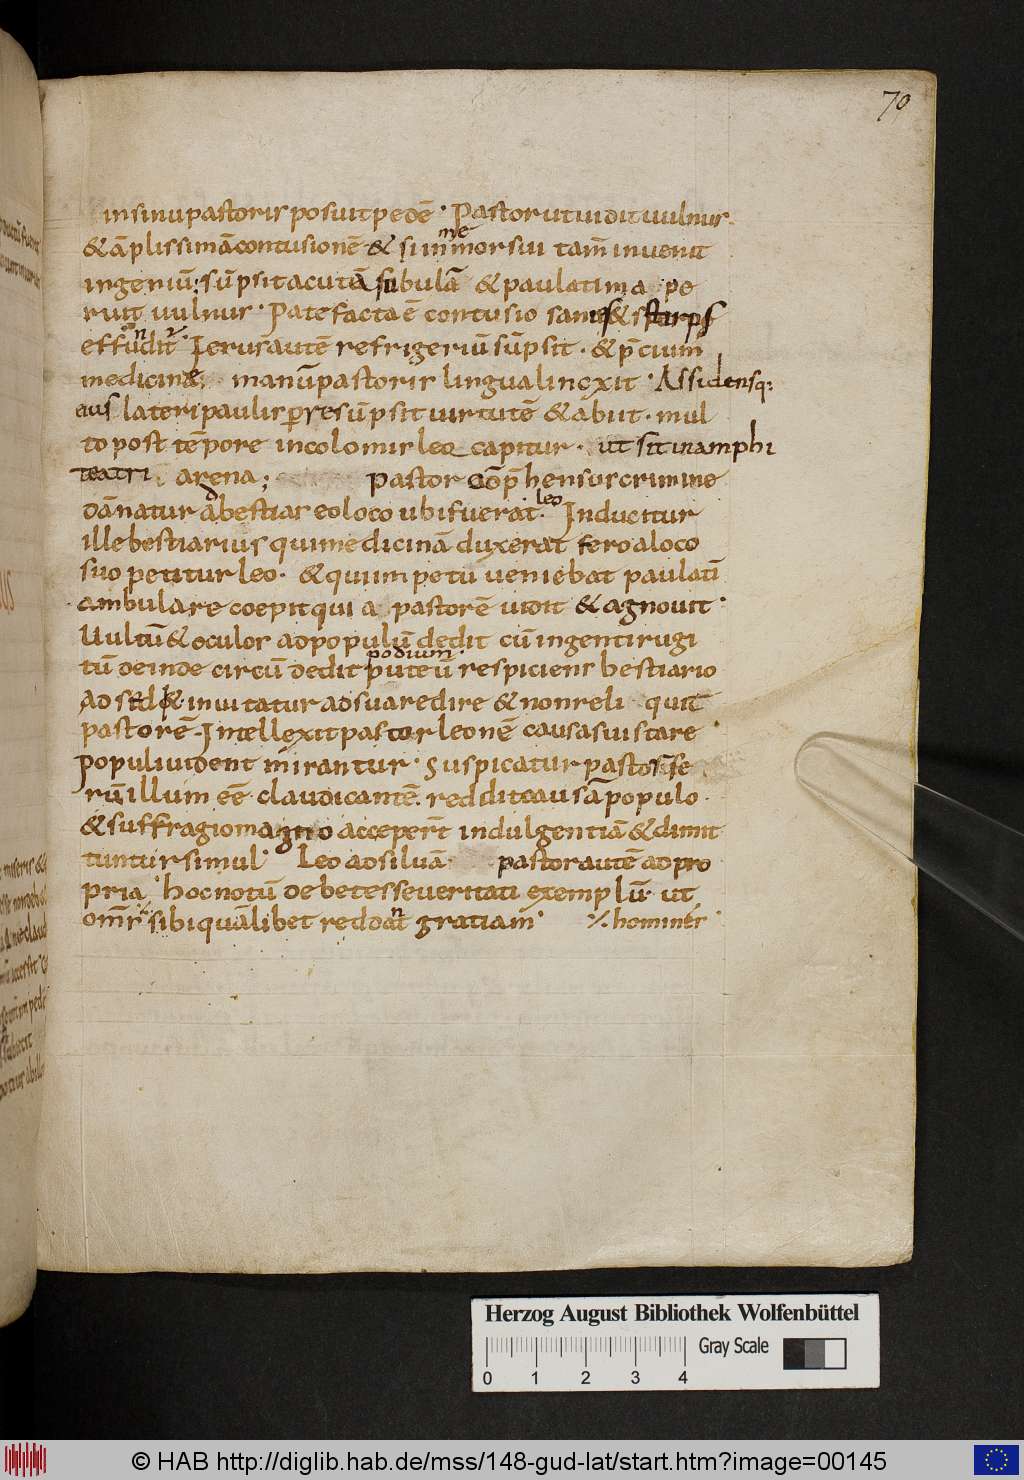 70
in sinu pastoris posuit pedē· Pastor ut uidit uulnus
& āplissimā contusionē· & si inmemor sui tam̄ inuenit
ingeniū; sūpsit acutā subulā & paulatim a pe
ruit uulnus· Patefacta ē contusio sanies & stirps
effundit· Ferus autē refrigeriū sūpsit· & p̄cium
medicinę; manū pastoris lingua linexit· Assidensq;
eius lateri paulis per resūpsit uirtutē & abiit· mul
to post tēpore incolomis leo capitur· ut sit in amphi
teatri arena; pastor cōp̄hensus crimine
dānatur ad bestias eo loco ubi fuerat leo· Inducitur
ille bestiarius qui medicinā duxerat fero a loco
suo petitur leo· & qui impetu ueniebat paulatī
ambulare coepit qui a pastorē uidit & agnouit·
Uultū & oculos ad populū dedit cū ingenti rugi
tū deinde circū dedit puteū podium· respiciens bestiario
ad sed & inuitatur ad sua redire & non reli quit
pastorē· Intellexit pastor leonē causa sui stare
populi uident mirantur· Suspicatur pastor se
rū illum eē claudicantē· reddit causā populo·
& suffragio magno acceper̄t indulgentiā & dimit
tuntur simul· Leo ad siluā· pastor autē ad pro
pria· hoc notū debet esse ueritati exemplū· ut
om̄s sibi quālibet reddant gratiam· ⁒ homines·
Herzog August Bibliothek Wolfenbüttel
Gray Scale
0 1 2 3 4
© HAB http://diglib.hab.de/mss/148-gud-lat/start.htm?image=00145